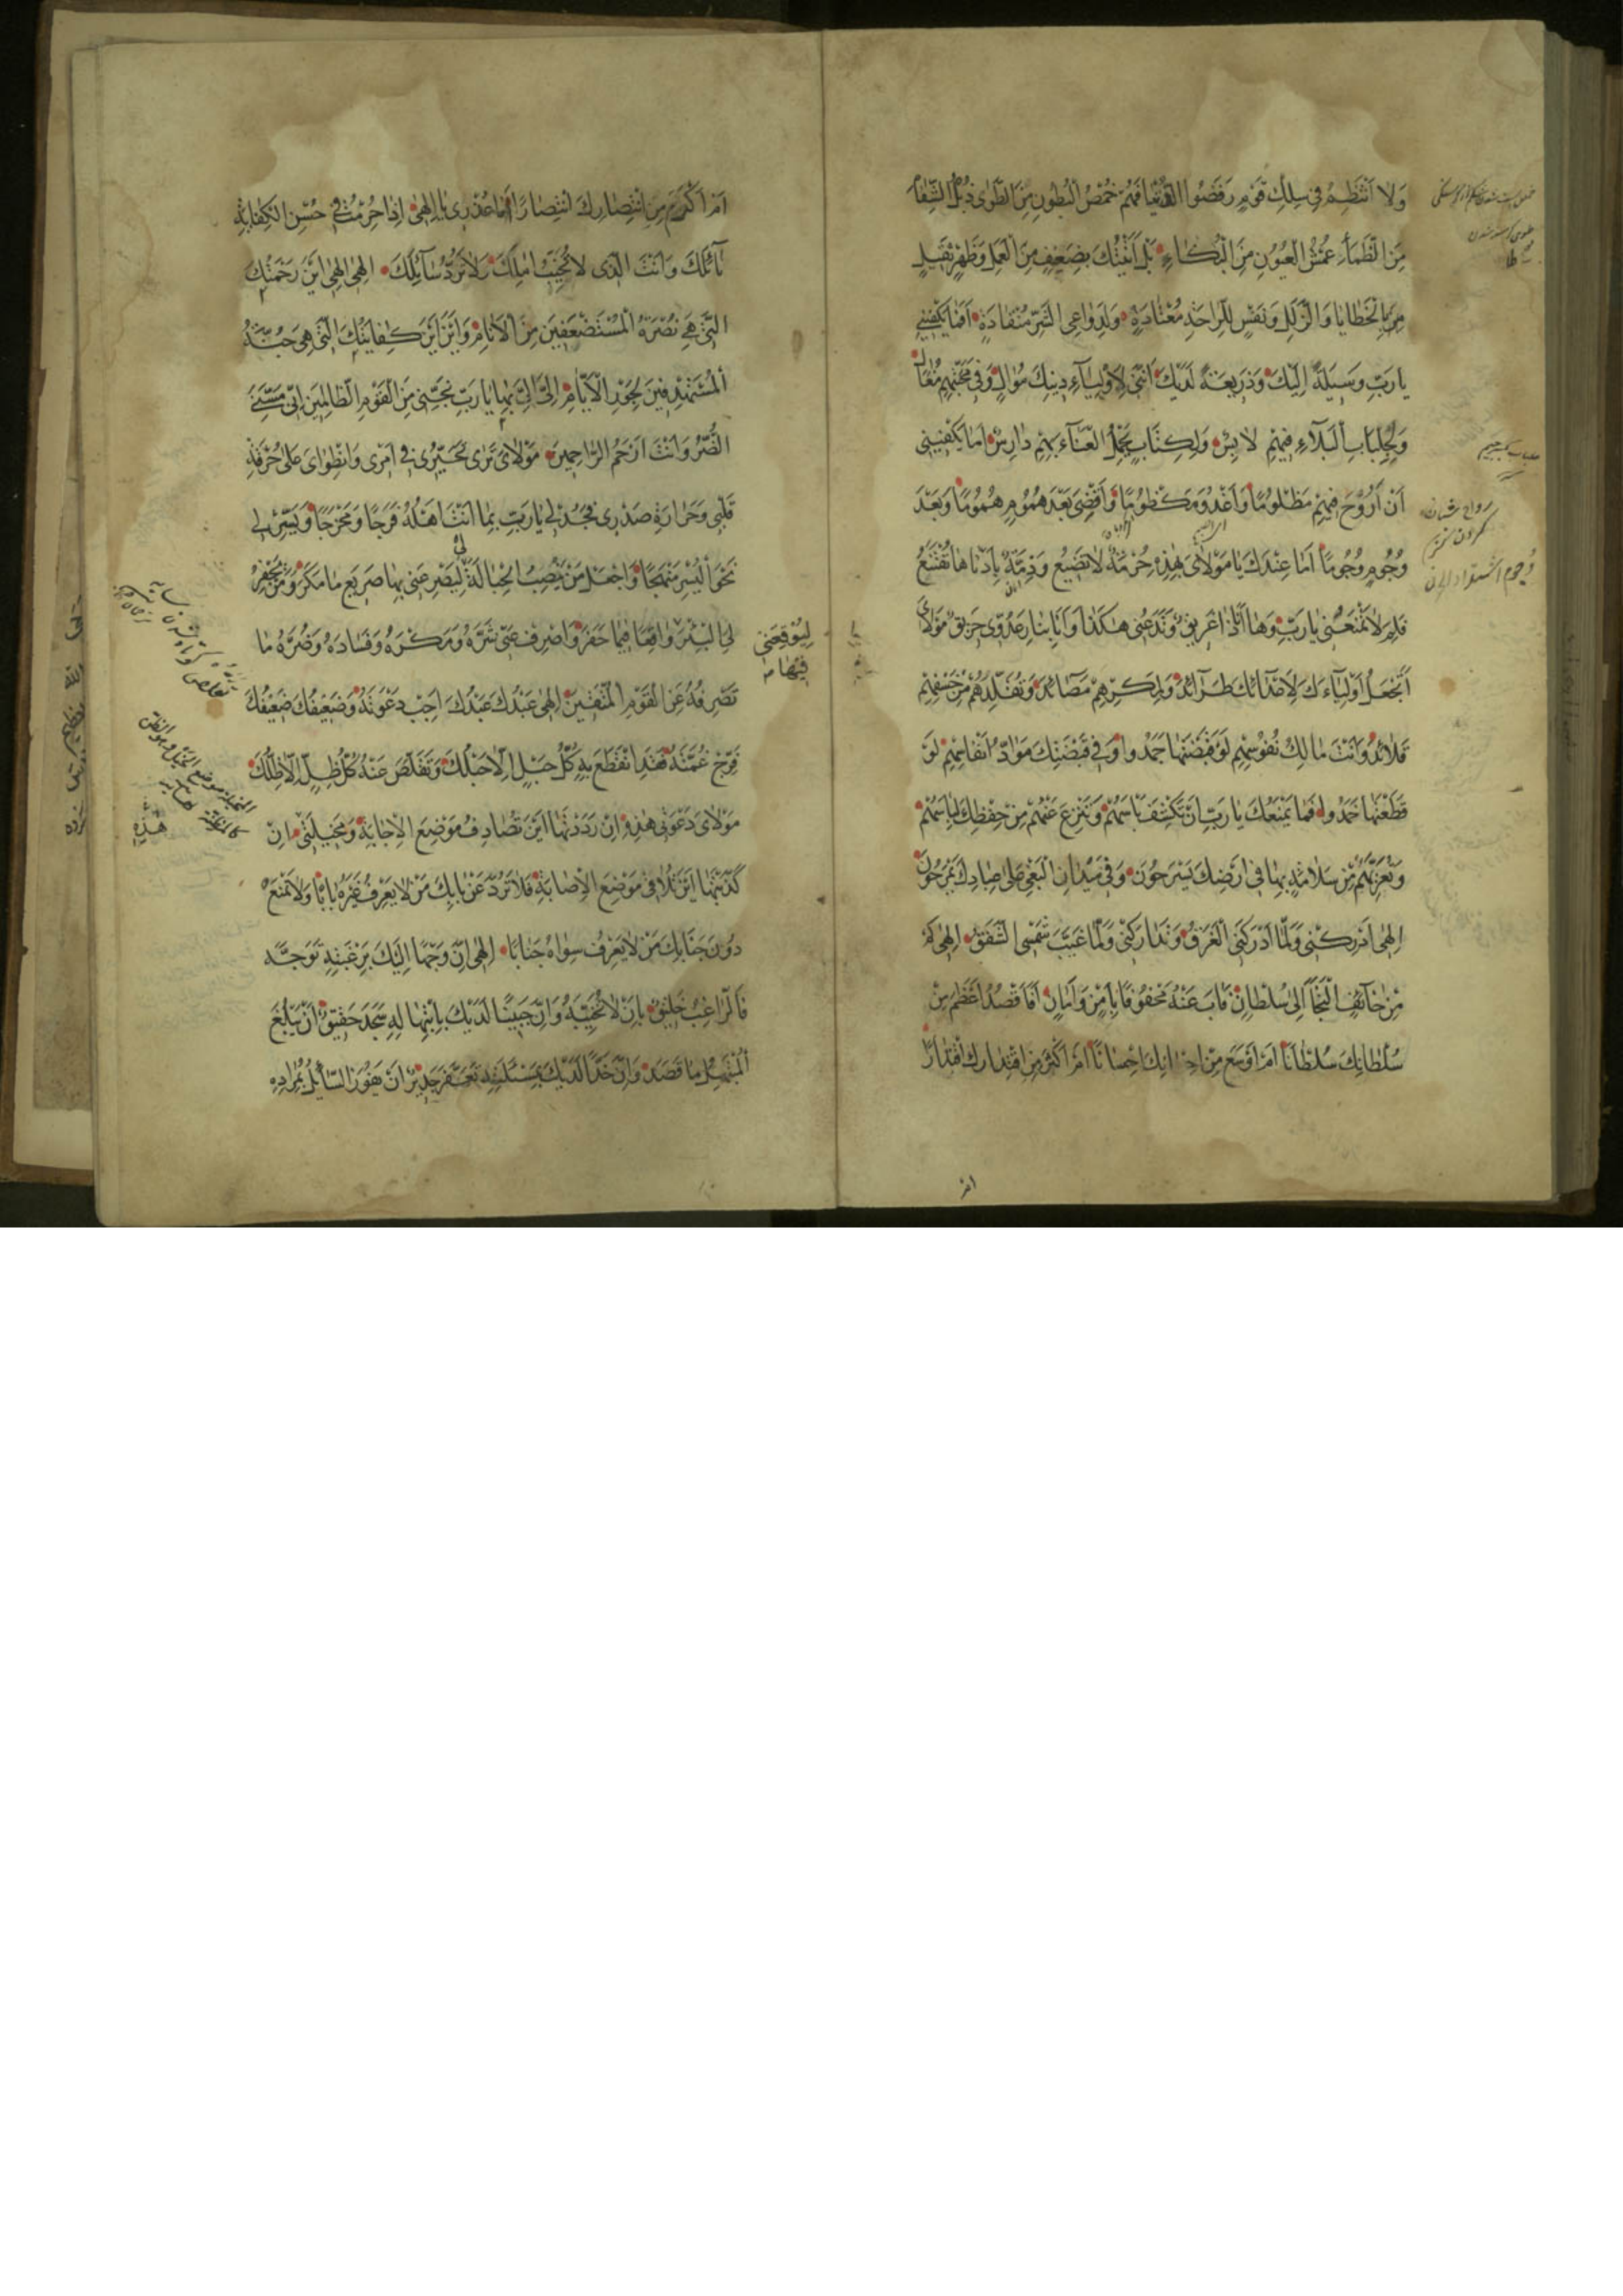 وَلا اَنْتَظِمُ فى سِلْكِ قَوْمٍ رَفَضُوا الدُّنْيا فَهُمْ خُمْصُ الْبُطُونِ مِنَ الطَّوىٰ ذُبُلُ الشِّفاهِ
مِنَ الظَّمَأِ عُمْشُ الْعُيُونِ مِنَ الْبُكاءِ بَلْ اَتَيْتُكَ بِضَعْفٍ مِنَ الْعَمَلِ وَظَهْرٍ ثَقيلٍ
مِنَ الْخَطايا وَالزَّلَلِ وَنَفْسٍ لِلرّاحَةِ مُعْتادَةٍ وَلِدَواعِى الشَّرِّ مُنْقادَةٍ اَفَما يَكْفينى
يا رَبِّ وَسيلَةً اِلَيْكَ وَذَريعَةً لَدَيْكَ اَنَّنى لِاَوْلِيآءِ دينِكَ مُوالٍ وَفى مَحَبَّتِهِمْ مُغالٍ
وَلِجِلْبابِ الْبَلآءِ فيهِمْ لابِسٌ وَلِكِتابِ تَحَمُّلِ الْعَنآءِ بِهِمْ دارِسٌ اَما يَكْفينى
اَنْ اَرُوحَ فيهِمْ مَظْلُومًا وَاَغْدُوَ مَكْظُومًا وَاَقْضِىَ بَعْدَ هُمُومٍ هُمُومًا وَبَعْدَ
وُجُومٍ وُجُومًا اَما عِنْدَكَ يا مَوْلاىَ بِهٰذِهِ حُرْمَةٌ لا تَضيعُ وَذِمَّةٌ بِاَدْناها تُقْتَنَعُ
فَلِمَ لا تَمْنَعُنى يا رَبِّ وَها اَنَا ذا غَريقٌ وَتَدَعُنى هٰكَذا وَاَنَا بِنارِ عَدُوّى حَريقٌ مَوْلاىَ
اَتَجْعَلُ اَوْلِيآءَكَ لِاَعْدآئِكَ طَرآئِدَ وَلِمَكْرِهِمْ مَصائِدَ وَتُقَلِّدُهُمْ مِنْ خَسْفِهِمْ
قَلائِدَ وَاَنْتَ مالِكُ نُفُوسِهِمْ لَوْ قَبَضْتَها جَمَدُوا وَفى قَبْضَتِكَ مَوادُّ اَنْفاسِهِمْ لَوْ
قَطَعْتَها خَمَدُوا فَما يَمْنَعُكَ يا رَبِّ اَنْ تَكْشِفَ بَاْسَهُمْ وَتَنْزِعَ عَنْهُمْ مِنْ حِفْظِكَ لِباسَهُمْ
وَتُعْرِيَهُمْ مِنْ سَلامَةٍ بِها فى اَرْضِكَ يَسْرَحُونَ وَفى مَيْدانِ الْبَغْىِ عَلىٰ عِبادِكَ يَمْرَحُونَ
اِلٰهى اَدْرِكْنى وَلَمّا اَدْرَكَنى الْغَرَقُ وَتَدارَكْنى وَلَمّا غَيَّبَ شَمْسِى الشَّفَقُ اِلٰهى كَمْ
مِنْ خآئِفٍ الْتَجَأَ اِلىٰ سُلْطانٍ فَآبَ عَنْهُ مَحْفُوفًا بِاَمْنٍ وَاَمانٍ اَفَاَقْصُدُ اَعْظَمَ مِنْ
سُلْطانِكَ سُلْطانًا اَمْ اَوْسَعَ مِنْ اِحْسانِكَ اِحْسانًا اَمْ اَكْثَرَ مِنِ اقْتِدارِكَ اقْتِدارًا
اَمْ
اَمْ اَكْرَمَ مِنِ انْتِصارِكَ انْتِصارًا اَما عُذْرى يا اِلٰهى اِذا حُرِمْتُ فى حُسْنِ الْكِفايَةِ
نآئِلَكَ وَاَنْتَ الَّذى لا يُخَيَّبُ اٰمِلُكَ وَلا يُرَدُّ سآئِلُكَ اِلٰهى اِلٰهى اَيْنَ رَحْمَتُكَ
الَّتى هِىَ نُصْرَةُ الْمُسْتَضْعَفينَ مِنَ الْاَنامِ وَاَيْنَ اَيْنَ كِفايَتُكَ الَّتى هِىَ جُنَّةُ
الْمُسْتَهْدَفينَ لِجَوْرِ الْاَيّامِ اِلَىَّ اِلَىَّ بِها يا رَبِّ نَجِّنى مِنَ الْقَوْمِ الظّالِمينَ اِنّى مَسَّنِىَ
الضُّرُّ وَاَنْتَ اَرْحَمُ الرّاحِمينَ مَوْلاىَ تَرىٰ تَحَيُّرى فى اَمْرى وَانْطِواىَ عَلىٰ حُرْقَةِ
قَلْبى وَحَرارَةِ صَدْرى فَجُدْ لى يا رَبِّ بِما اَنْتَ اَهْلُهُ فَرَجًا وَمَخْرَجًا وَيَسِّرْ لى
نَحْوَ الْيُسْرِ مَنْهَجًا وَاجْعَلْ مَنْ يَنْصِبُ لى الْحِبالَةَ لِيَصْرَعَنى بِها صَريعَ ما مَكَرَ وَمَنْ يَحْفِرُ
لِىَ الْبِئْرَ واقِعًا فيما حَفَرَ وَاصْرِفْ عَنّى شَرَّهُ وَمَكْرَهُ وَفَسادَهُ وَضُرَّهُ ما
لِيُوقِعَنى
فيها
تَصْرِفُهُ عَنِ الْقَوْمِ الْمُتَّقينَ اِلٰهى عَبْدُكَ عَبْدُكَ اَجِبْ دَعْوَتَهُ وَضَعيفُكَ ضَعيفُكَ
فَرِّجْ غُمَّتَهُ فَقَدِ انْقَطَعَ بِهِ كُلُّ حَبْلٍ اِلّا حَبْلُكَ وَتَقَلَّصَ عَنْهُ كُلُّ ظِلٍّ اِلّا ظِلُّكَ
مَوْلاىَ دَعْوَتى هٰذِهِ اِنْ رَدَدْتَها اَيْنَ تُصادِفُ مَوْضِعَ الْاِجابَةِ وَمَخيلَتى اِنْ
هٰذِهِ
كَذَّبْتَها اَيْنَ تُلاقى مَوْضِعَ الْاِصابَةِ فَلا تَرُدَّ عَنْ بابِكَ مَنْ لا يَعْرِفُ غَيْرَهُ بابًا وَلا تَمْنَعْ
دُونَ جَنابِكَ مَنْ لا يَعْرِفُ سِواهُ جَنابًا اِلٰهى اِنَّ وَجْهًا اِلَيْكَ بِرَغْبَتِهِ تَوَجَّهَ
فَالرّاغِبُ خَليقٌ بِاَنْ لا تُخَيِّبَهُ وَاِنَّ جَبينًا لَدَيْكَ بِابْتِهالِهِ سَجَدَ حَقيقٌ اَنْ يَبْلُغَ
الْمُبْتَهِلُ ما قَصَدَ وَاِنَّ خَدًّا لَدَيْكَ بِمَسْئَلَتِهِ تَعَفَّرَ جَديرٌ اَنْ يَفُوزَ السّآئِلُ بِمُرادِهِ